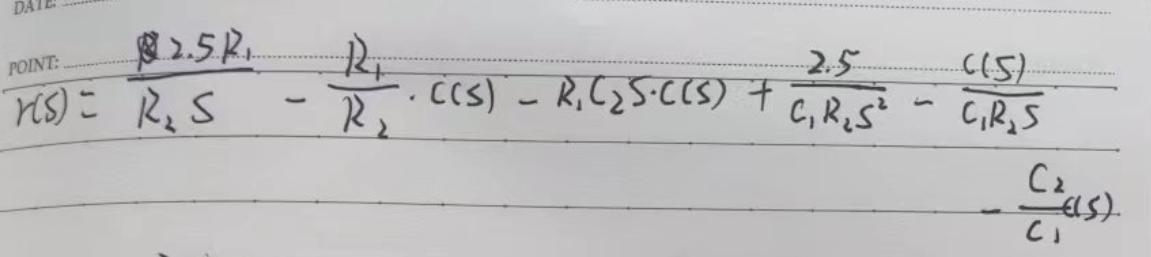 DATE:
POINT:
r(s) = \frac{2.5R_1}{R_2 S} - \frac{R_1}{R_2} \cdot C(s) - R_1 C_2 S \cdot C(s) + \frac{2.5}{C_1 R_2 S^2} - \frac{C(S)}{C_1 R_2 S}
- \frac{C_2}{C_1} C(s)